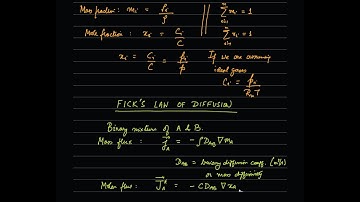 Mass fraction: mᵢ = ρᵢ/ρ || Σᵢ₌₁ⁿ mᵢ = 1
Mole fraction: xᵢ = Cᵢ/C || Σᵢ₌₁ⁿ xᵢ = 1
xᵢ = Cᵢ/C = pᵢ/p
If we are assuming
ideal gases
Cᵢ = pᵢ/RᵤT
FICK'S LAW OF DIFFUSION
Binary mixture of A & B.
Mass flux: j⃗_A = -ρD_AB ∇m_A
D_AB = binary diffusion coeff. (m²/s)
or mass diffusivity
Molar flux: J⃗_A = -CD_AB ∇x_A